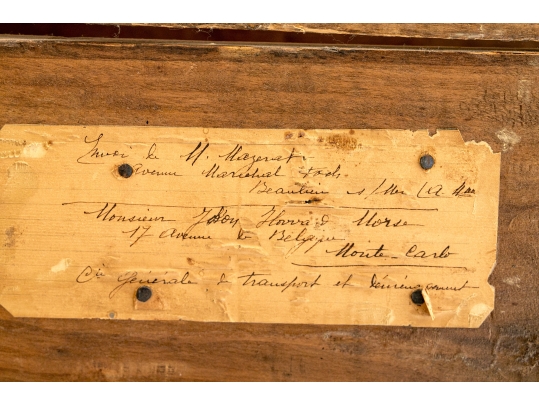 Envoi de M. Mazenet
Avenue Maréchal Foch
Beaulieu s/Mer (A
Monsieur Howard Morse
17 Avenue de Belgique
Monte-Carlo
Cie Générale de transport et déménagement